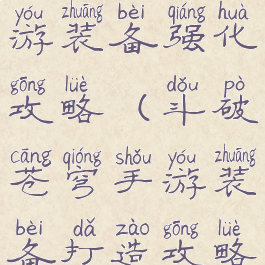 yóu zhuāng bèi qiáng huà
游装备强化
gōng lüè dǒu pò
攻略（斗破
cāng qióng shǒu yóu zhuāng
苍穹手游装
bèi dǎ zào gōng lüè
备打造攻略